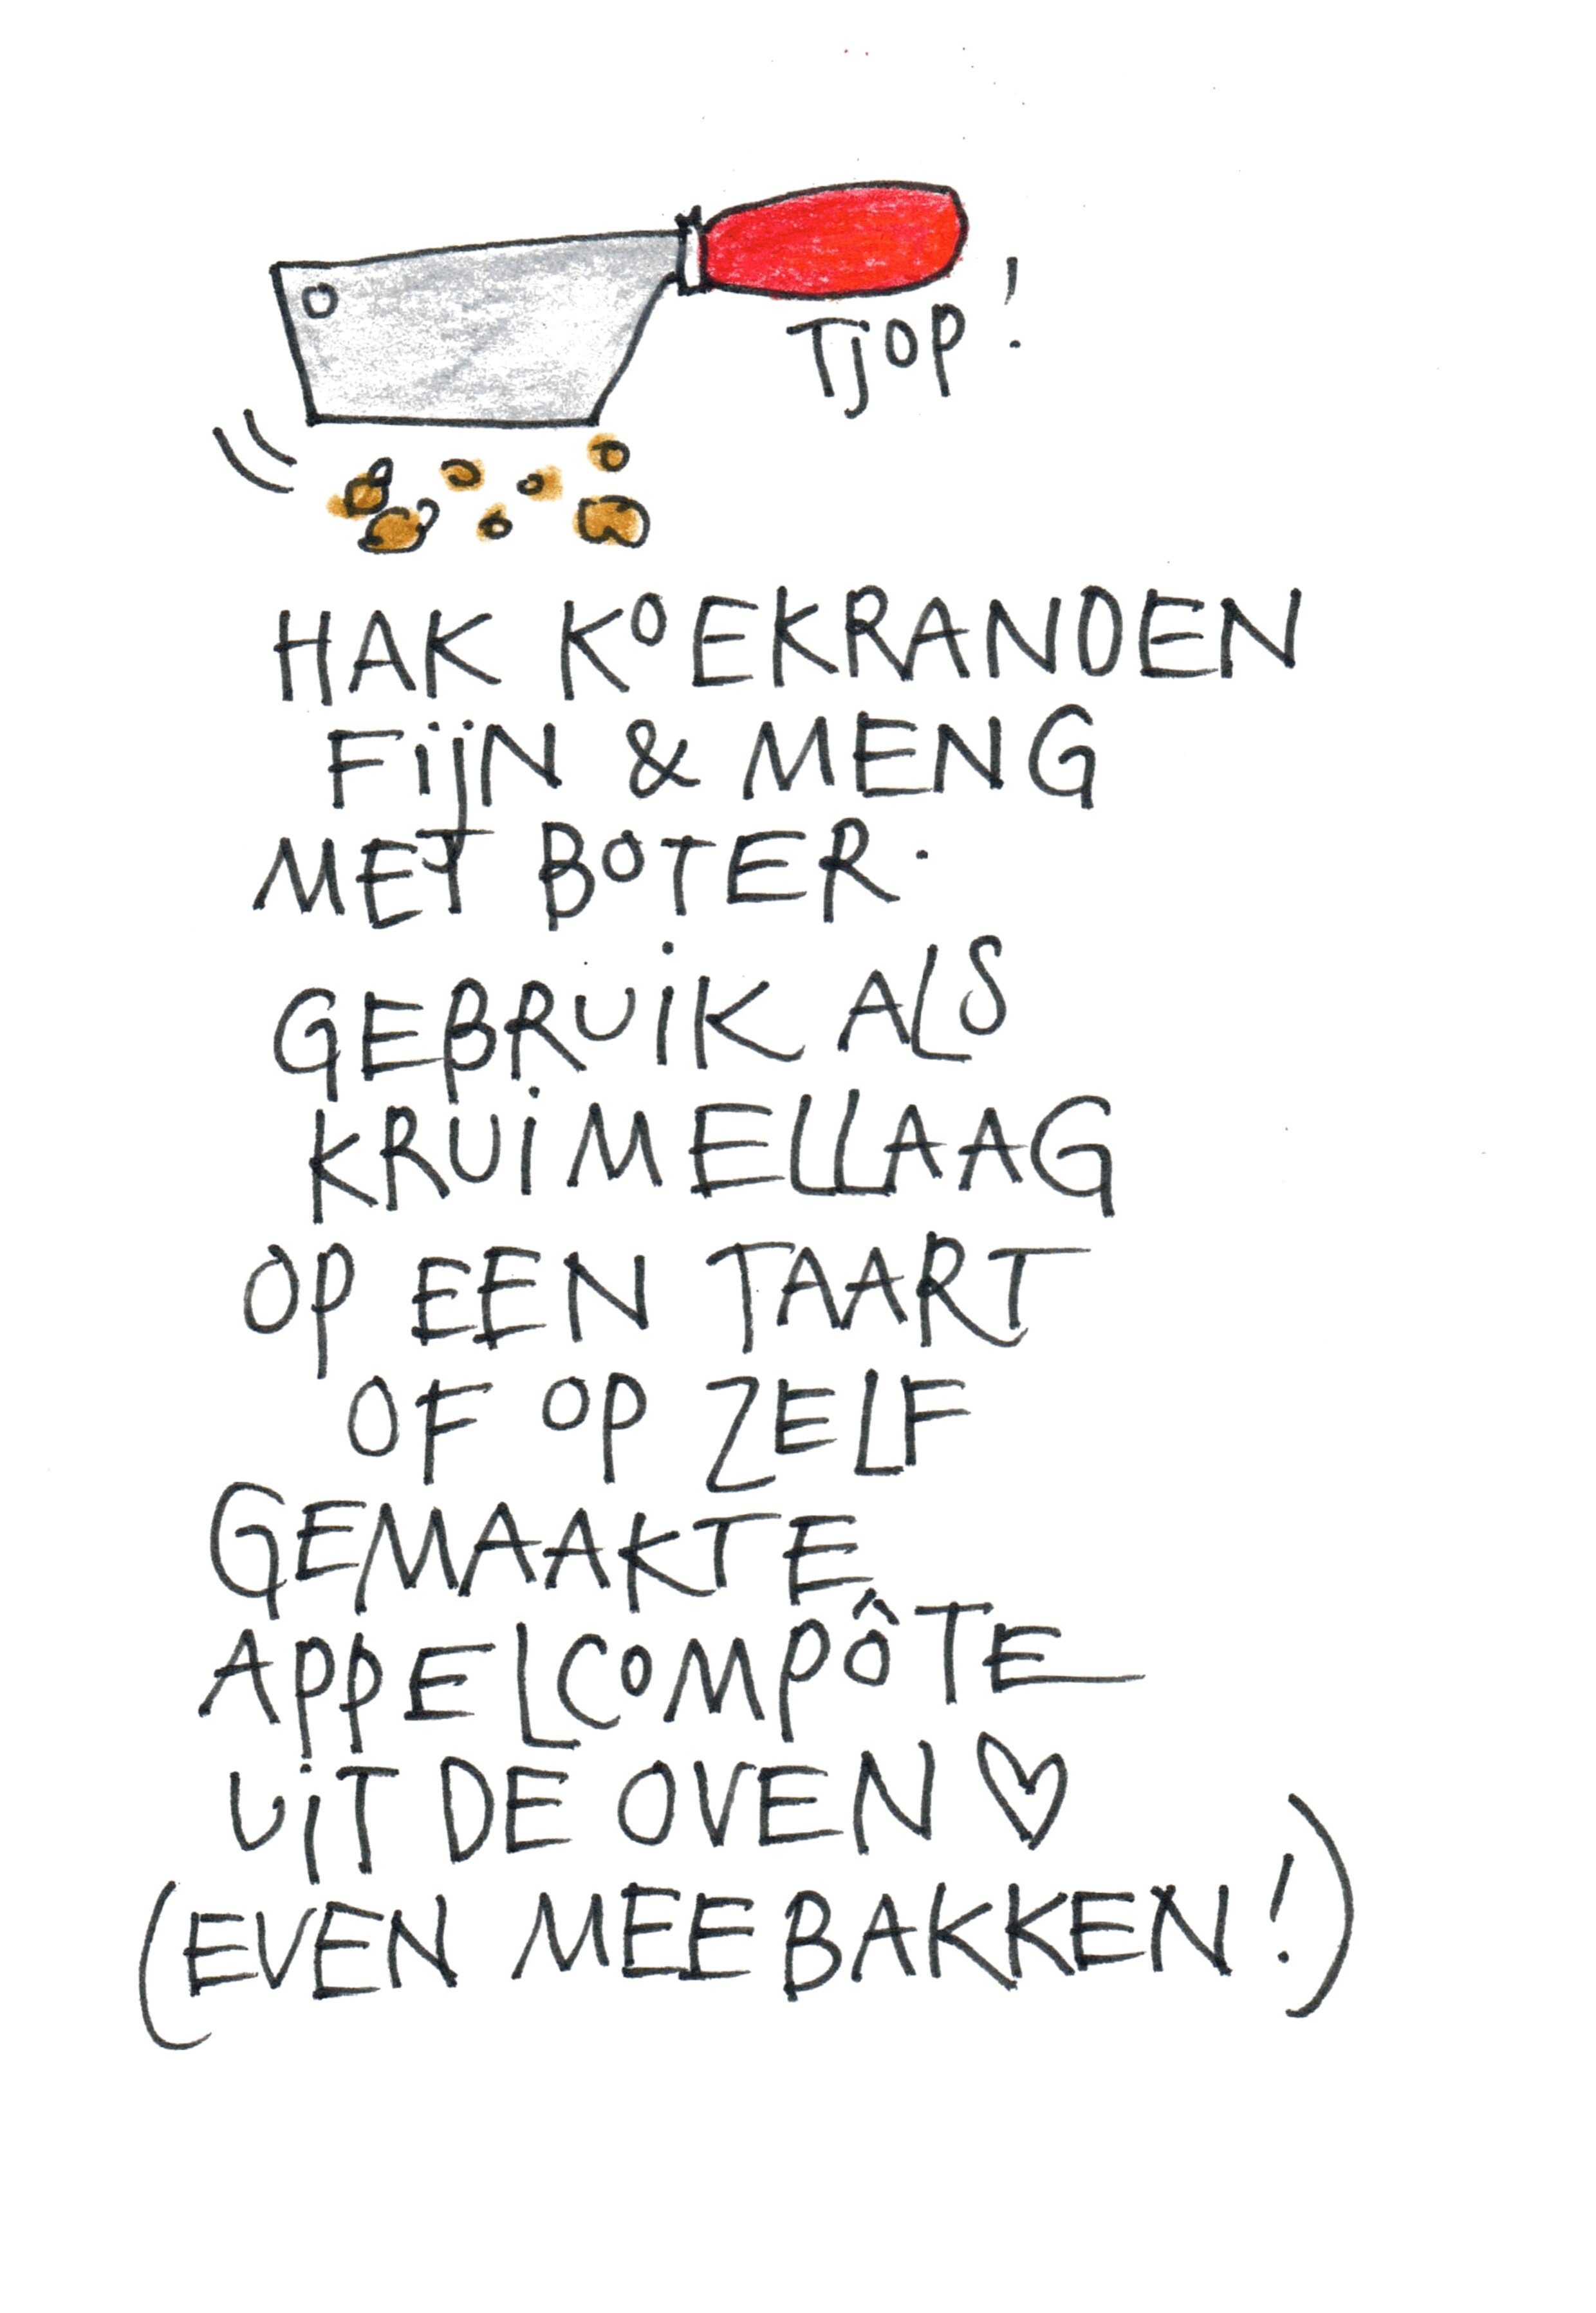 Tjop!
HAK KOEKRANDEN
FijN & MENG
MET BOTER.
GEBRUiK ALS
KRUiMELLAAG
OP EEN TAART
OF OP ZELF
GEMAAKTE
APPELCOMPÔTE
UiT DE OVEN ♡
(EVEN MEEBAKKEN!)